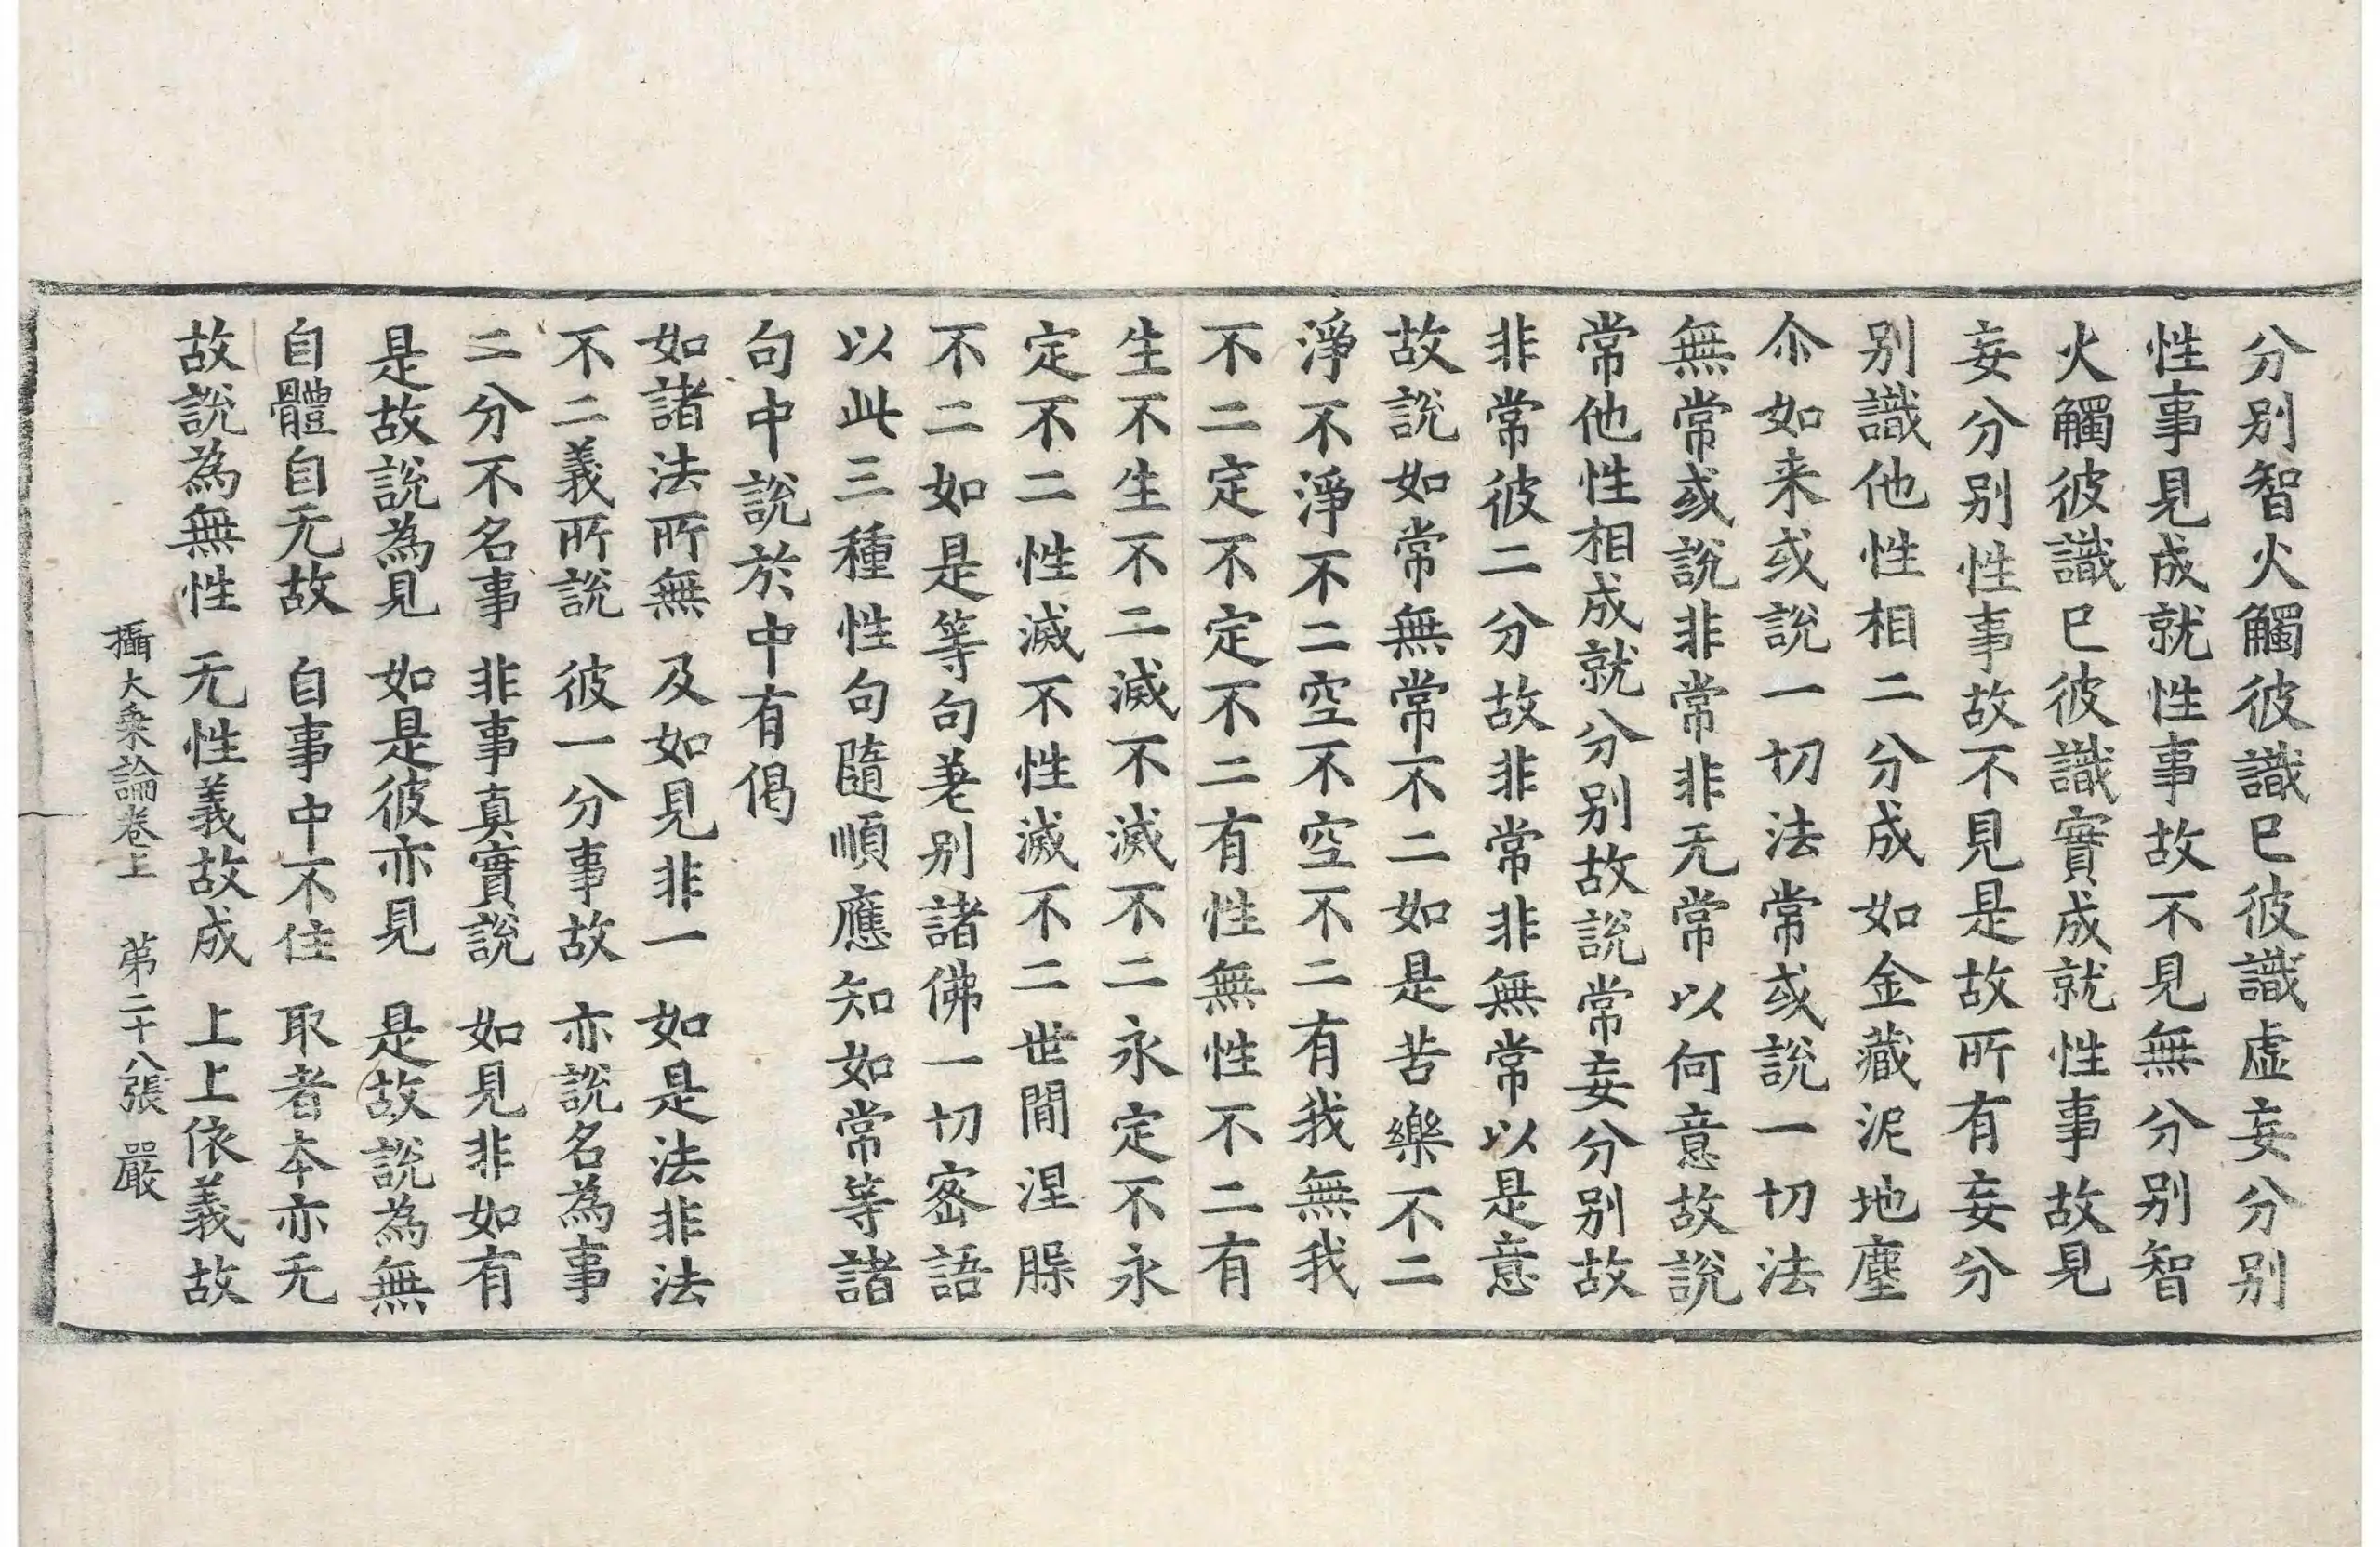 分别智火觸彼識已彼識虛妄分别
性事見成就性事故不見無分别智
火觸彼識已彼識實成就性事故見
妄分别性事故不見是故所有妄分
别識他性相二分成如金藏泥地塵
尒如来或說一切法常或說一切法
無常或說非常非无常以何意故說
常他性相成就分别故說常妄分别故
非常彼二分故非常非無常以是意
故說如常無常不二如是苦樂不二
淨不淨不二空不空不二有我無我
不二定不定不二有性無性不二有
生不生不二滅不滅不二永定不永
定不二性滅不性滅不二世閒涅槃
不二如是等句差别諸佛一切密語
以此三種性句隨順應知如常等諸
句中說於中有偈
如諸法所無　及如見非一　如是法非法
不二義所說　彼一分事故　亦說名為事
二分不名事　非事真實說　如見非如有
是故說為見　如是彼亦見　是故說為無
自體自无故　自事中不住　取者本亦无
故說為無性　无性義故成　上上依義故
攝大乘論卷上　苐二十八張　嚴